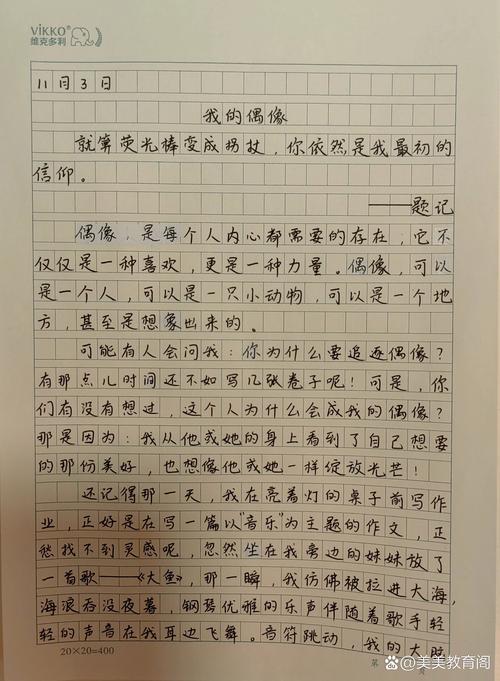 VIKKO®
维克多利
11月3日
我的偶像
就算荧光棒变成拐杖，你依然是我最初的
信仰。
——题记
偶像，是每个人内心都需要的存在；它不
仅仅是一种喜欢，更是一种力量。偶像，可以
是一个人，可以是一只小动物，可以是一个地
方，甚至是想象出来的。
可能有人会问我：你为什么要追逐偶像？
有那点儿时间还不如写几张卷子呢！可是，你
们有没有想过，这个人为什么会成我的偶像？
那是因为：我从他或她的身上看到了自己想要
的那份美好，也想像他或她一样绽放光芒！
还记得那一天，我在亮着灯的桌子前写作
业，正好是在写一篇以“音乐”为主题的作文，正
愁找不到灵感呢，忽然坐在我旁边的妹妹放了
一首歌——《大鱼》，那一瞬，我仿佛被拉进大海，
海浪吞没夜幕，钢琴优雅的乐声伴随着歌手轻
轻的声音在我耳边飞舞。音符跳动，我的大脑
20×20=400
第
页
@美美教育阁